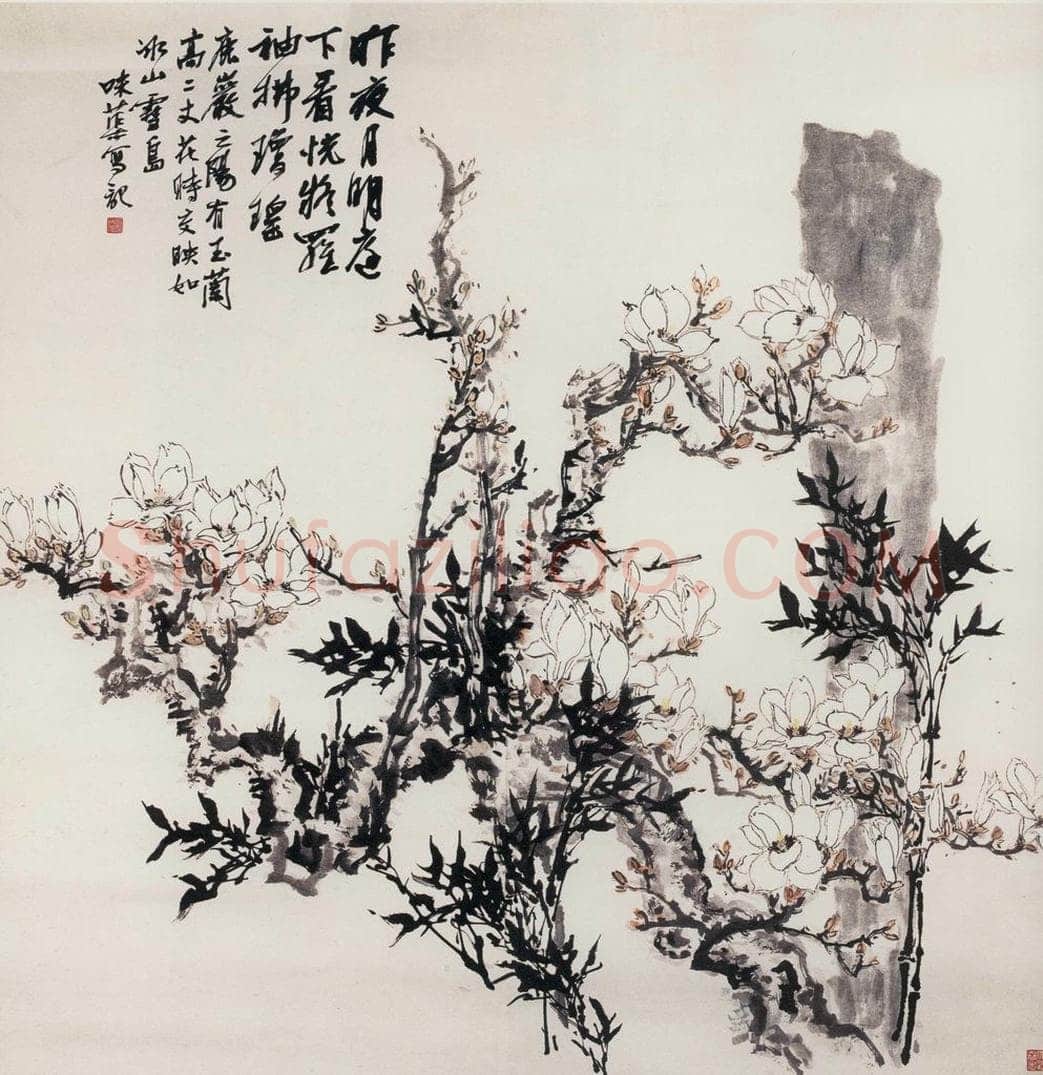 昨夜月明庭
下看恍疑羅
袖拂瓊瑤
鹿巖之陽有玉蘭
高二丈花時交映如
冰山雪島
味蕉寫記
Shufaziliao.COM